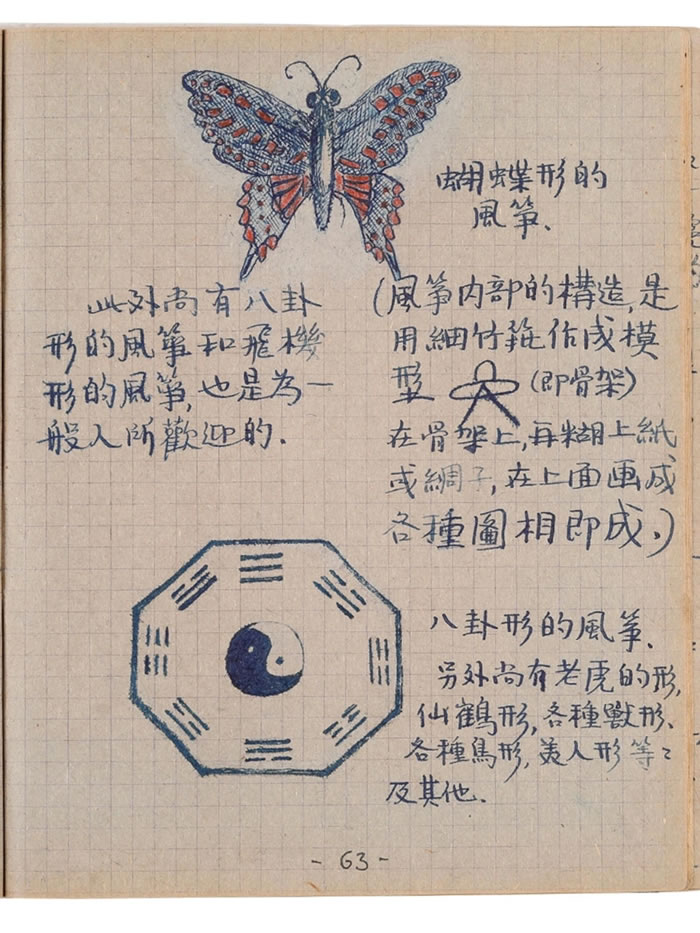 蝴蝶形的
風箏、
此外尚有八卦
形的風箏和飛機
形的風箏,也是為一
般人所歡迎的.
(風箏内部的構造,是
用細竹箍作成模
型 (即骨架)
在骨架上,再糊上紙
或綢子,在上面画成
各種圖相即成.)
八卦形的風箏、
另外尚有老虎的形,
仙鶴形,各種獸形、
各種鳥形,美人形等々
及其他.
- 63 -